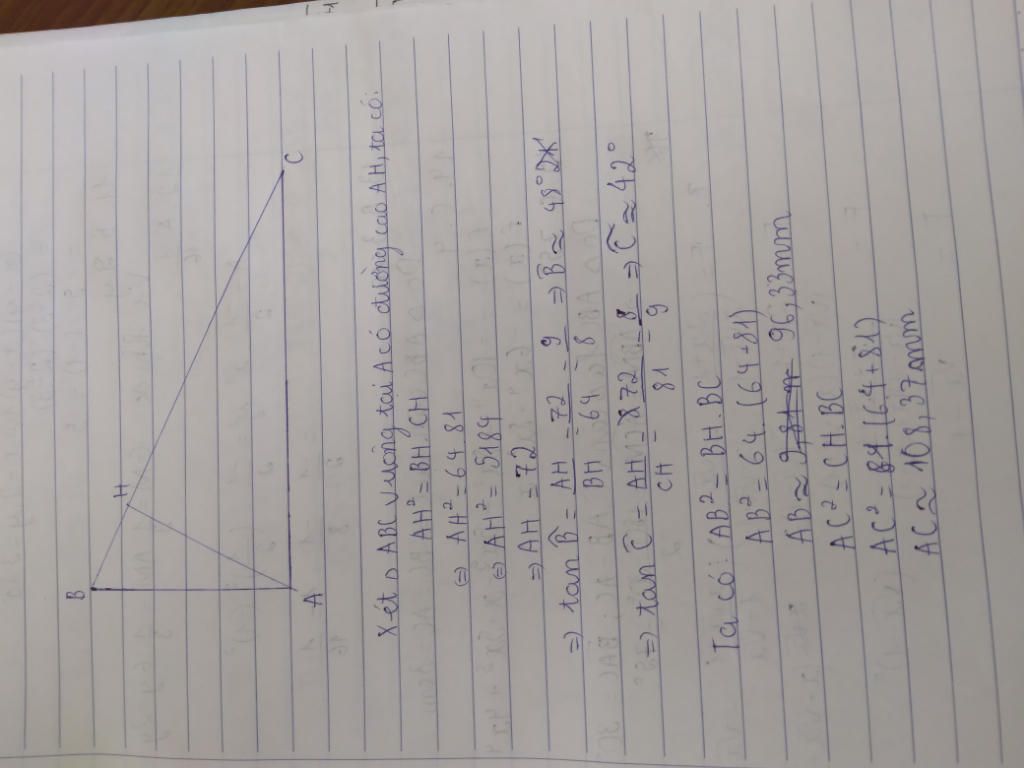 B
H
C
A
Xét △ ABC vuông tại A có đường cao AH, ta có:
AH² = BH. CH
⇔ AH² = 64. 81
⇔ AH² = 5184
⇒ AH = 72
⇒ tan B̂ = AH/BH = 72/64 = 9/8 ⇒ B̂ ≃ 48°
⇒ tan Ĉ = AH/CH = 72/81 = 8/9 ⇒ Ĉ ≃ 42°
Ta có: AB² = BH. BC
AB² = 64. (64+81)
AB ≃ 96,33mm
AC² = CH. BC
AC² = 81. (64+81)
AC ≃ 108,37mm